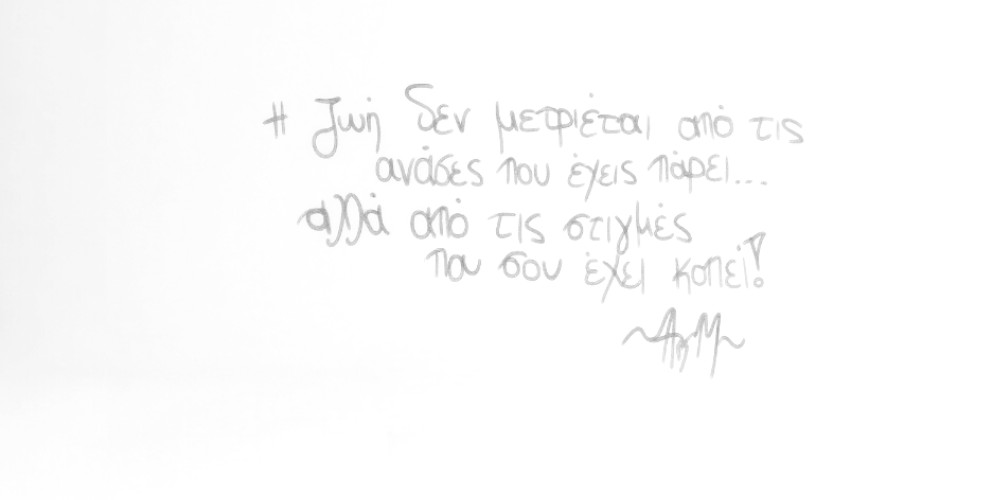 Η ζωή δεν μετριέται από τις
ανάσες που έχεις πάρει...
αλλά από τις στιγμές
που σου έχει κοπεί!